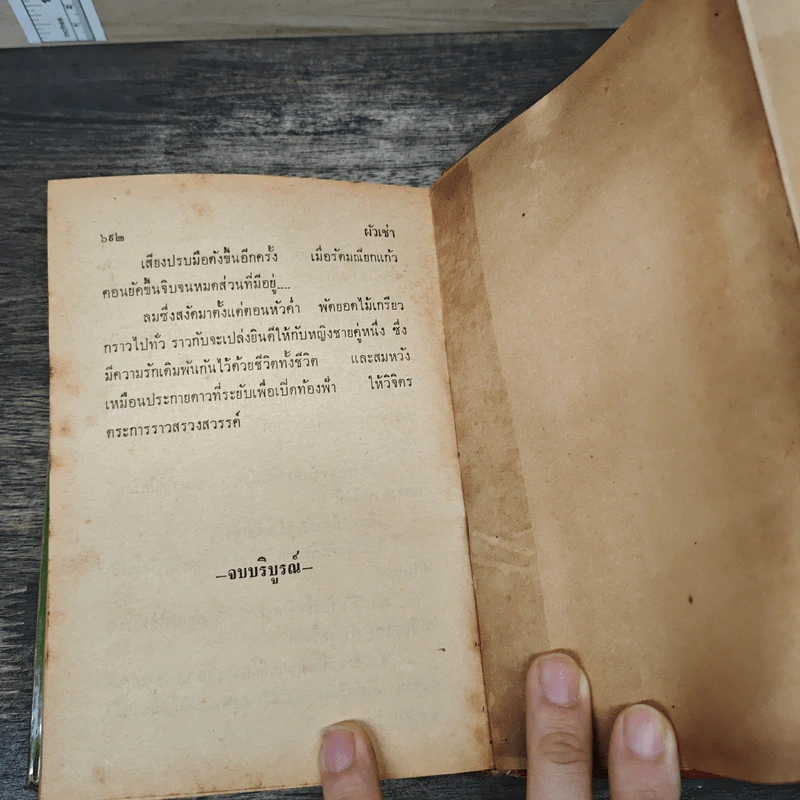 ๖๙๒ ผัวเช่า
เสียงปรบมือดังขึ้นอีกครั้ง เมื่อรัตมณียกแก้ว
คอนยัคขึ้นจิบจนหมดส่วนที่มีอยู่....
ลมซึ่งสงัดมาตั้งแต่ตอนหัวค่ำ พัดยอดไม้เกรียว
กราวไปทั่ว ราวกับจะเปล่งยินดีให้กับหญิงชายคู่หนึ่ง ซึ่ง
มีความรักเดิมพันกันไว้ด้วยชีวิตทั้งชีวิต และสมหวัง
เหมือนประกายดาวที่ระยับเพื่อเปิดท้องฟ้า ให้วิจิตร
ตระการราวสรวงสวรรค์
–จบบริบูรณ์–